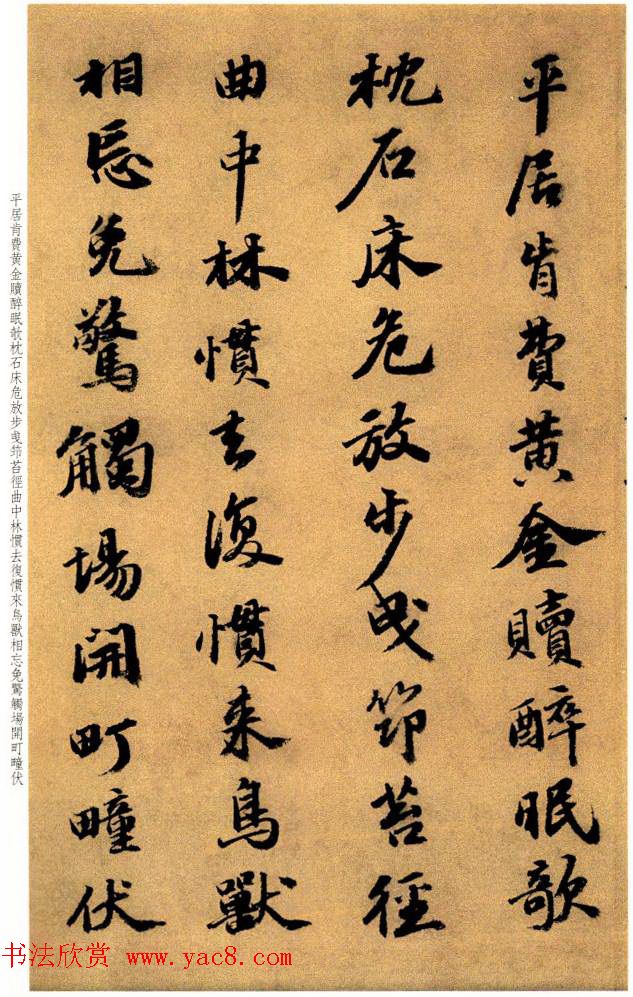 平居肯費黄金贖醉眠欹
枕石床危放步曳笻苔徑
曲中林慣去復慣来鳥獸
相忘免驚觸場開町疃伏
平居肯費黄金贖醉眠欹枕石床危放步曳笻苔徑曲中林慣去復慣來鳥獸相忘免驚觸場開町疃伏
书法欣赏 www.yac8.com